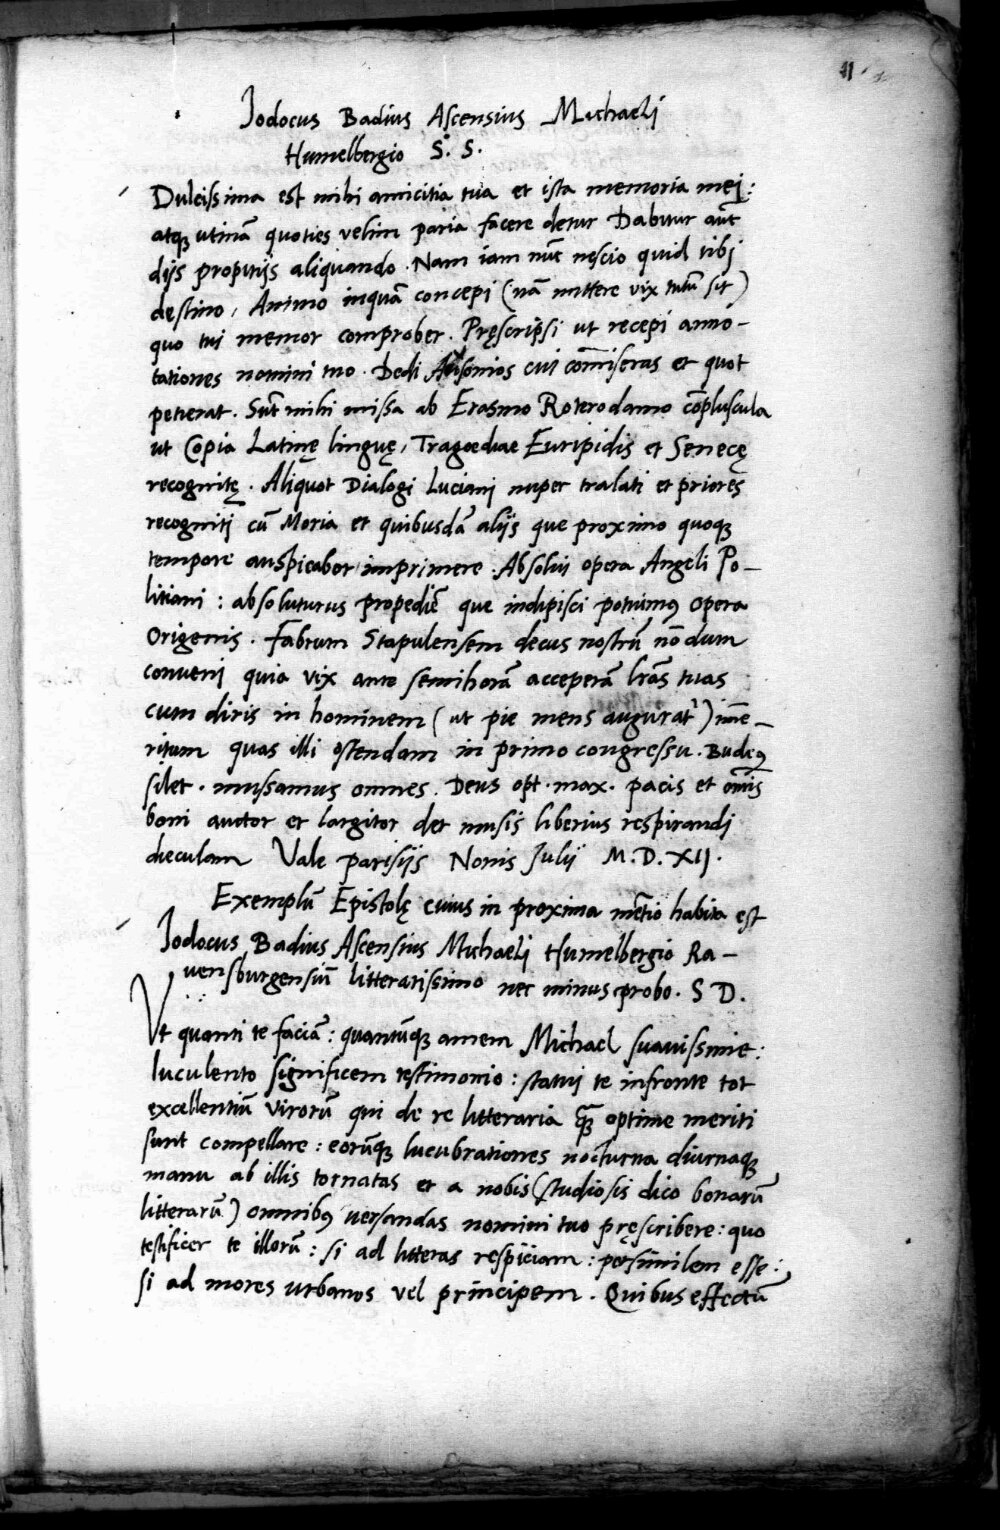 11
Jodocus Badius Ascensius Michaeli
Humelbergio S. S.
Dulcissima est mihi amicitia tua et ista memoria mej:
atqꝫ utinā quoties velim paria facere detur Dabitur aūt
dijs propitijs aliquando. Nam iam nūc nescio quid tibj
destino, Animo inquā concepi (nā mittere vix tutū sit)
quo tui memor comprober. Pręscripsi ut recepi anno-
tationes nomini tuo. Dedi Ausonios cui cōmiseras et quot
petierat. Sūt mihi missa ab Erasmo Roterodamo cōpluscula
ut Copia Latinę linguę, Tragoediae Euripidis et Senecę
recognitę. Aliquot Dialogi Luciani nuper tralati et priores
recogniti cū Moria et quibusdā alijs que proximo quoqꝫ
tempore auspicabor imprimere. Absolvi opera Angeli Po-
litiani: absoluturus propediē que indipisci potuimꝰ opera
Origenis. Fabrum Stapulensem decus nostrū nōdum
conveni quia vix ante semihorā acceperā lrās tuas
cum diris in hominem (ut pie mens auguratʳ) imme-
ritum quas illi ostendam in primo congressu. Budeꝰ
silet. mussamus omnes. Deus opt. max. pacis et om̄is
boni auctor et largitor det musis liberius respirandi
dieculam Vale parisijs Nonis Julij M.D.XIJ.
Exemplū Epistolę cuius in proxima mētio habita est
Jodocus Badius Ascensius Michaeli Humelbergio Ra-
vensburgensiū litteratissimo nec minus probo. S D.
Ut quanti te faciā: quantūqꝫ amem Michael suavissime:
luculento significem testimonio: statui te infronte tot
excellentiū virorū qui de re litteraria optime meriti
sunt compellare: eorūqꝫ lucubrationes nocturna diurnaqꝫ
manu ab illis tornatas et a nobis (studiosis dico bonarū
litterarū) omnibꝰ versandas nomini tuo pręscribere: quo
testificer te illorū: si ad litteras respiciam: persimilem esse:
si ad mores urbanos vel principem. Quibus effectū